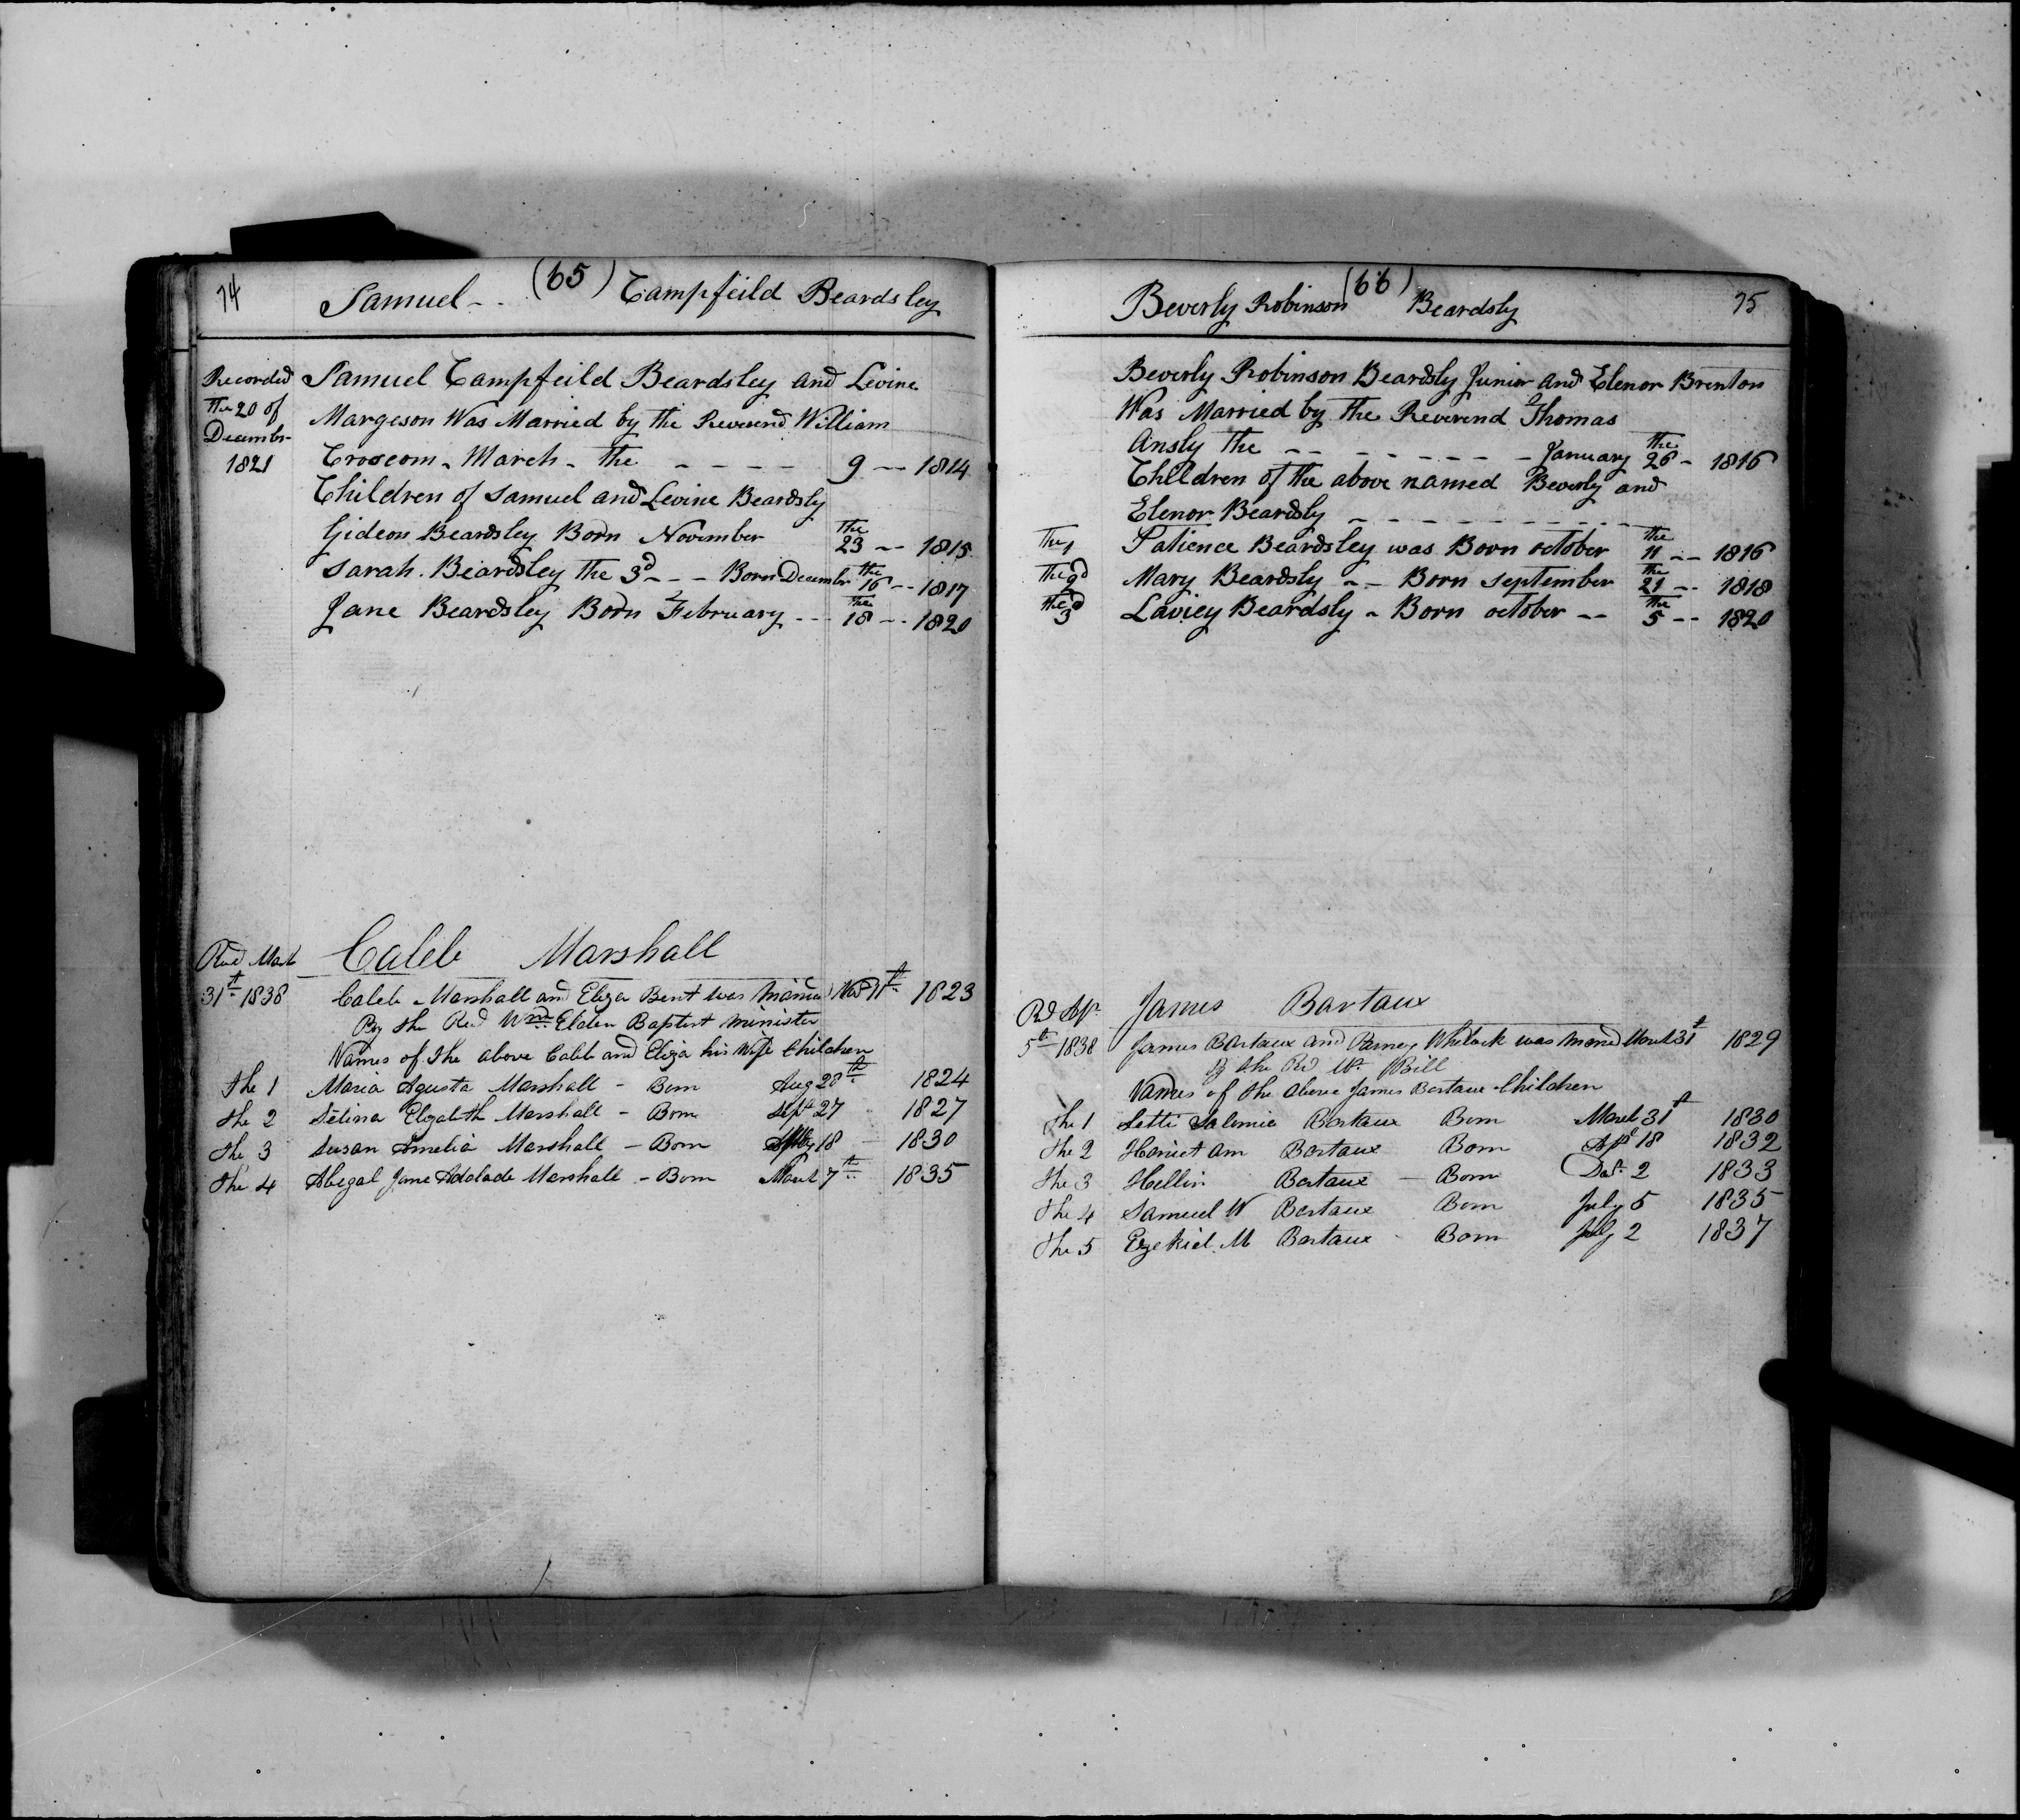 74 Samuel - - (65) Campfeild Beardsley
Recorded Samuel Campfeild Beardsley and Levine
The 20 of Margeson Was Married by the Reverend William
Decembr
1821 Croscom - March - the - - - - 9 -- 1814
Children of Samuel and Levine Beardsly
Gideon Beardsley Born November the 23 -- 1815
Sarah. Beardsley the 3d - - - Born Decembr the 16 -- 1817
Jane Beardsley Born February -- the 18 -- 1820
Caleb Marshall
31t 1838 Caleb Marshall and Eliza Bent was Maried Nov 11th 1823
By the Rev Wm Elder Baptist Minister
Names of the above Caleb and Eliza his Wife Children
the 1 Maria Agusta Marshall - Born Aug 28th 1824
the 2 Selina Elizabeth Marshall - Born Sept 27 1827
the 3 Susan Amelia Marshall - Born 18 1830
the 4 Abegal Jane Adolade Marshall - Born March 7th 1835
Beverly Robinson (66) Beardsly 75
Beverly Robinson Beardsly Junior and Elenor Brenton
Was Married by the Reverend Thomas
Ansly the - - - - - - - - January the 26 - 1816
Children of the above named Beverly and
Elenor Beardsly - - - - - - - - -
The 1 Patience Beardsley was Born october the 11 -- 1816
The 2d Mary Beardsly - - Born september the 21 -- 1818
the 3d Laviey Beardsly - Born october -- the 5 -- 1820
James Bartaux
5th 1838 James Bartaux and Whelock was Maried March 31t 1829
By the Rev Wm Bill
Names of the above James Bartaux Children
the 1 Salemia Bartaux Born March 31t 1830
the 2 Hariet Ann Bartaux Born Apl 18 1832
the 3 Hellin Bartaux - Born 2 1833
the 4 Samuel W Bartaux Born July 5 1835
the 5 Ezekiel M Bartaux - Born July 2 1837